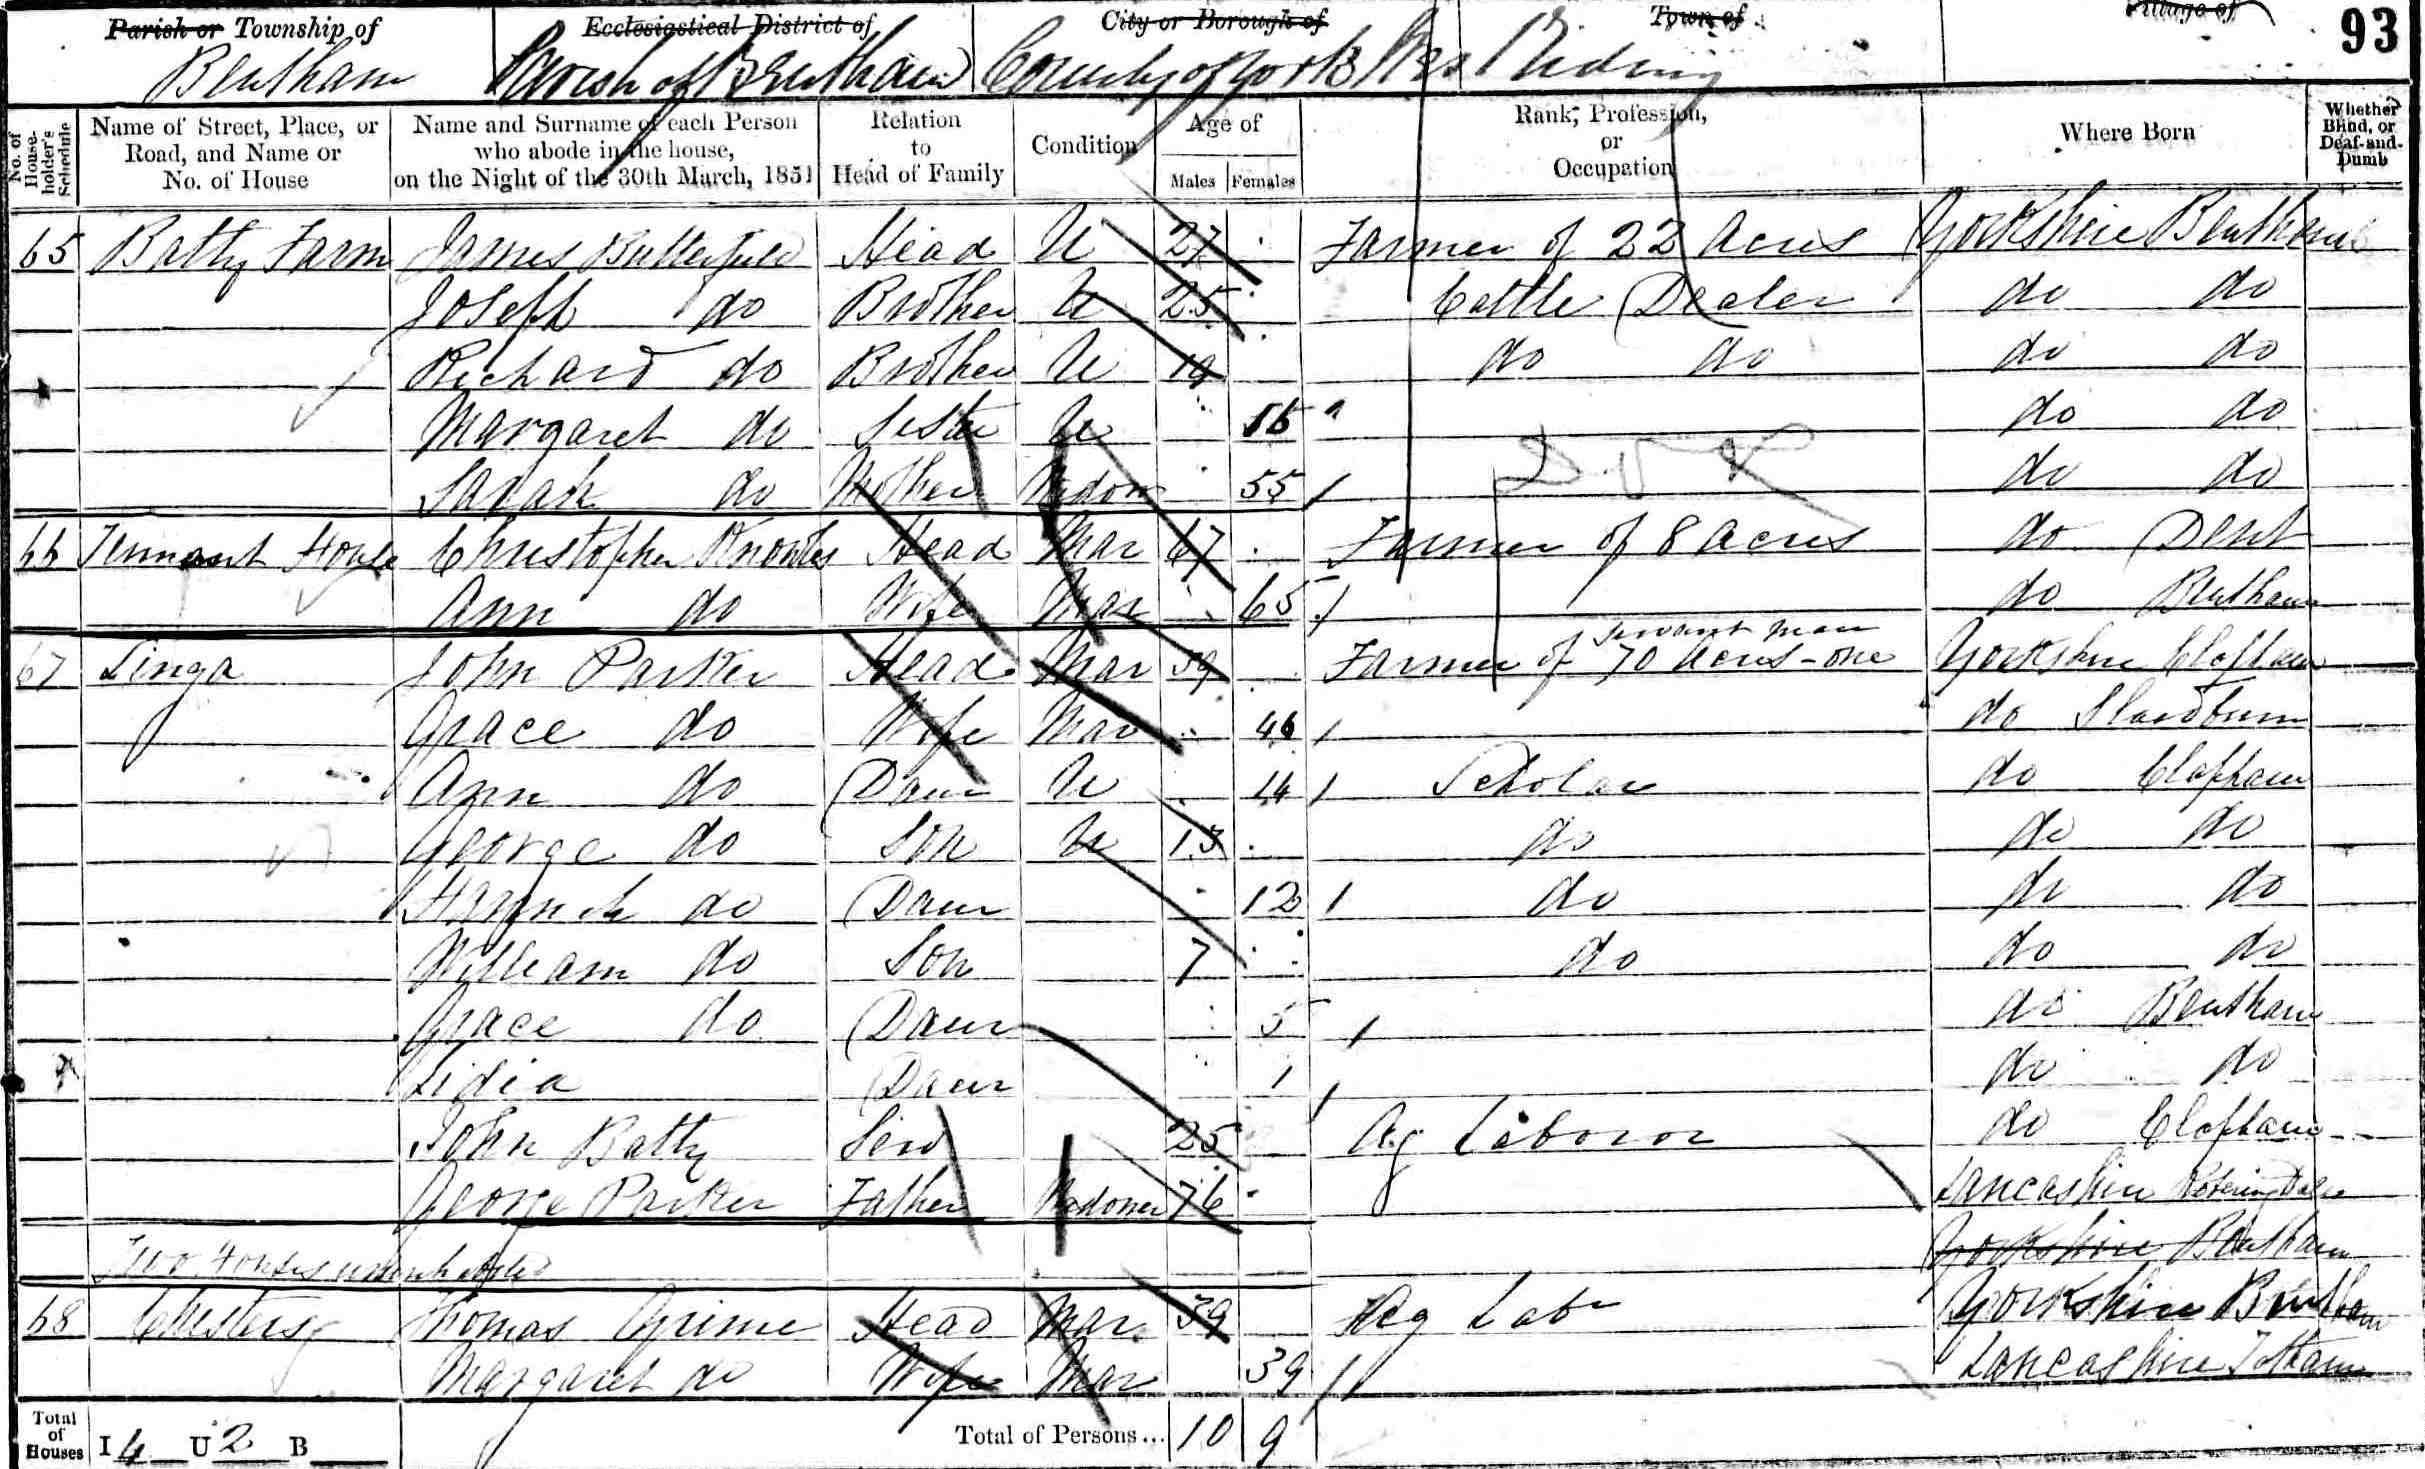 Parish or Township of
Ecclesiastical District of
City or Borough of
Town of
Village of
93
Bentham
Parish of Bentham
County of York
Riding
No. of House-holder's Schedule
Name of Street, Place, or Road, and Name or No. of House
Name and Surname of each Person who abode in the house, on the Night of the 30th March, 1851
Relation to Head of Family
Condition
Age of
Males
Females
Rank, Profession, or Occupation
Where Born
Whether Blind, or Deaf-and-Dumb
65 Batty Farm James Butterfield Head U 27 Farmer of 22 Acres Yorkshire Bentham
Joseph do Brother U 25 Cattle Dealer do do
Richard do Brother U 19 do do do do
Margaret do Sister U 16 do do
Sarah do Mother Widow 55 do do
66 Tennant House Christopher Knowles Head Mar 67 Farmer of 8 Acres do Dent
Ann do Wife Mar 65 do Bentham
servant man
67 Linga John Parker Head Mar 39 Farmer of 70 Acres - one Yorkshire Clapham
Grace do Wife Mar do Slaidburn
Ann do Daur U 14 Scholar do Clapham
George do Son U 13 do do do
Hannah do Daur 12 do do do
William do Son 7 do do do
Grace do Daur 5 do Bentham
Lidia Daur 1 do do
John Batty Serv 25 Ag Laboror do Clapham
George Parker Father Widower 76 Lancashire
Two Houses uninhabited Yorkshire Bentham
68 Chesters Thomas Grime Head Mar 39 Ag Labr Yorkshire Bentham
Margaret do Wife Mar 39 Lancashire Tatham
Total of Houses I 4 U 2 B Total of Persons... 10 9